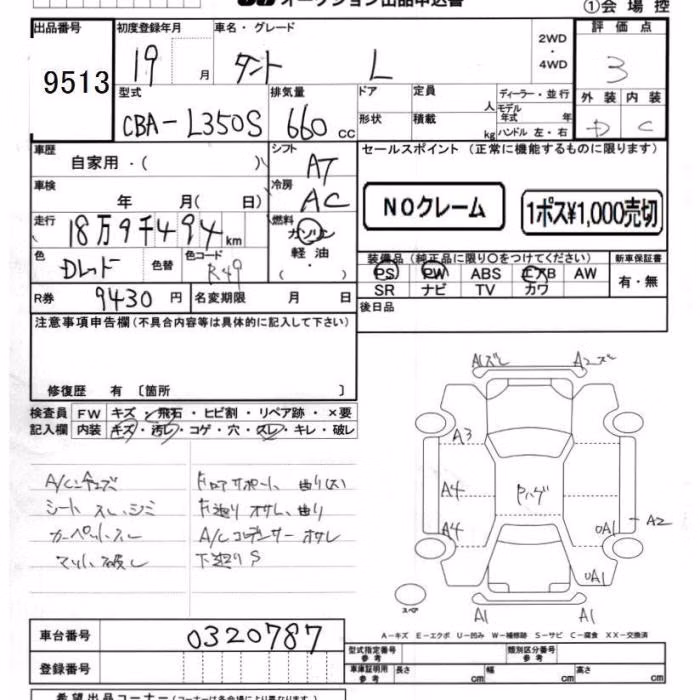 オークション出品申込書
①会場控
出品番号
9513
初度登録年月
19 月
車名・グレード
タント L
2WD
・
4WD
評価点
3
型式
CBA-L350S
排気量
660 cc
ドア
定員
人
形状
積載
kg
ディーラー・並行
モデル年式 年
ハンドル 左・右
外装 内装
D C
車歴
自家用・( )
シフト
AT
セールスポイント(正常に機能するものに限ります)
NOクレーム
1ポス¥1,000売切
車検
年 月( 日)
冷房
AC
走行
18万9千494 km
燃料
ガソリン
軽油
・
( )
色
Dレッド
色替
色コード
R49
装備品(純正品に限り○をつけてください)
PS PW ABS エアB AW
SR ナビ TV カワ
新車保証書
有・無
R券 9430円
名変期限 月 日
後日品
注意事項申告欄(不具合内容等は具体的に記入して下さい)
修復歴 有〔箇所 〕
検査員 FW キズ・飛石・ヒビ割・リペア跡・×要
記入欄 内装 キズ・汚レ・コゲ・穴・スレ・キレ・破レ
シート スレ、シミ
カーペットスレ
マット破レ
ドロアサポート 曲り(大)
下廻り オサレ、曲り
A/Cコンデンサー オサレ
下廻りS
A1ズレ
A2ズレ
A3
A4
A4
Rハゲ
A2
A1
A1
スペア
A1
A1
A-キズ E-エクボ U-凹み W-補修跡 S-サビ C-腐食 XX-交換済
車台番号
0320787
登録番号
型式指定番号
参考
類別区分番号
参考
車庫証明用
参考
長さ cm
幅 cm
高さ cm
希望出品コーナー(コーナーは各会場により異なります。)